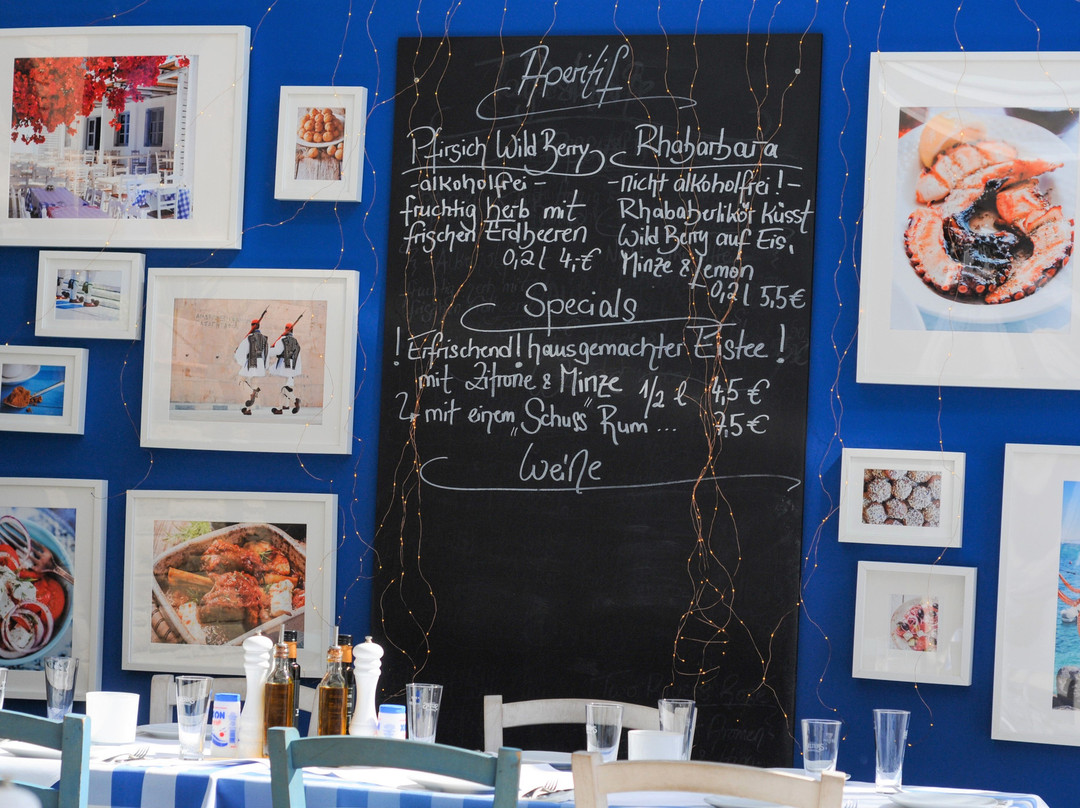 Aperitif
Pfirsich Wild Berry
-alkoholfrei-
fruchtig herb mit
frischen Erdbeeren
0,2 l 4,-€
Rhabarbara
-nicht alkoholfrei!-
Rhababerlikör küsst
Wild Berry auf Eis,
Minze & Lemon
0,2 l 5,5€
Specials
! Erfrischend! hausgemachter Eistee!
mit Zitrone & Minze 1/2 l 4,5 €
2. mit einem "Schuss" Rum ... 7,5€
Weine